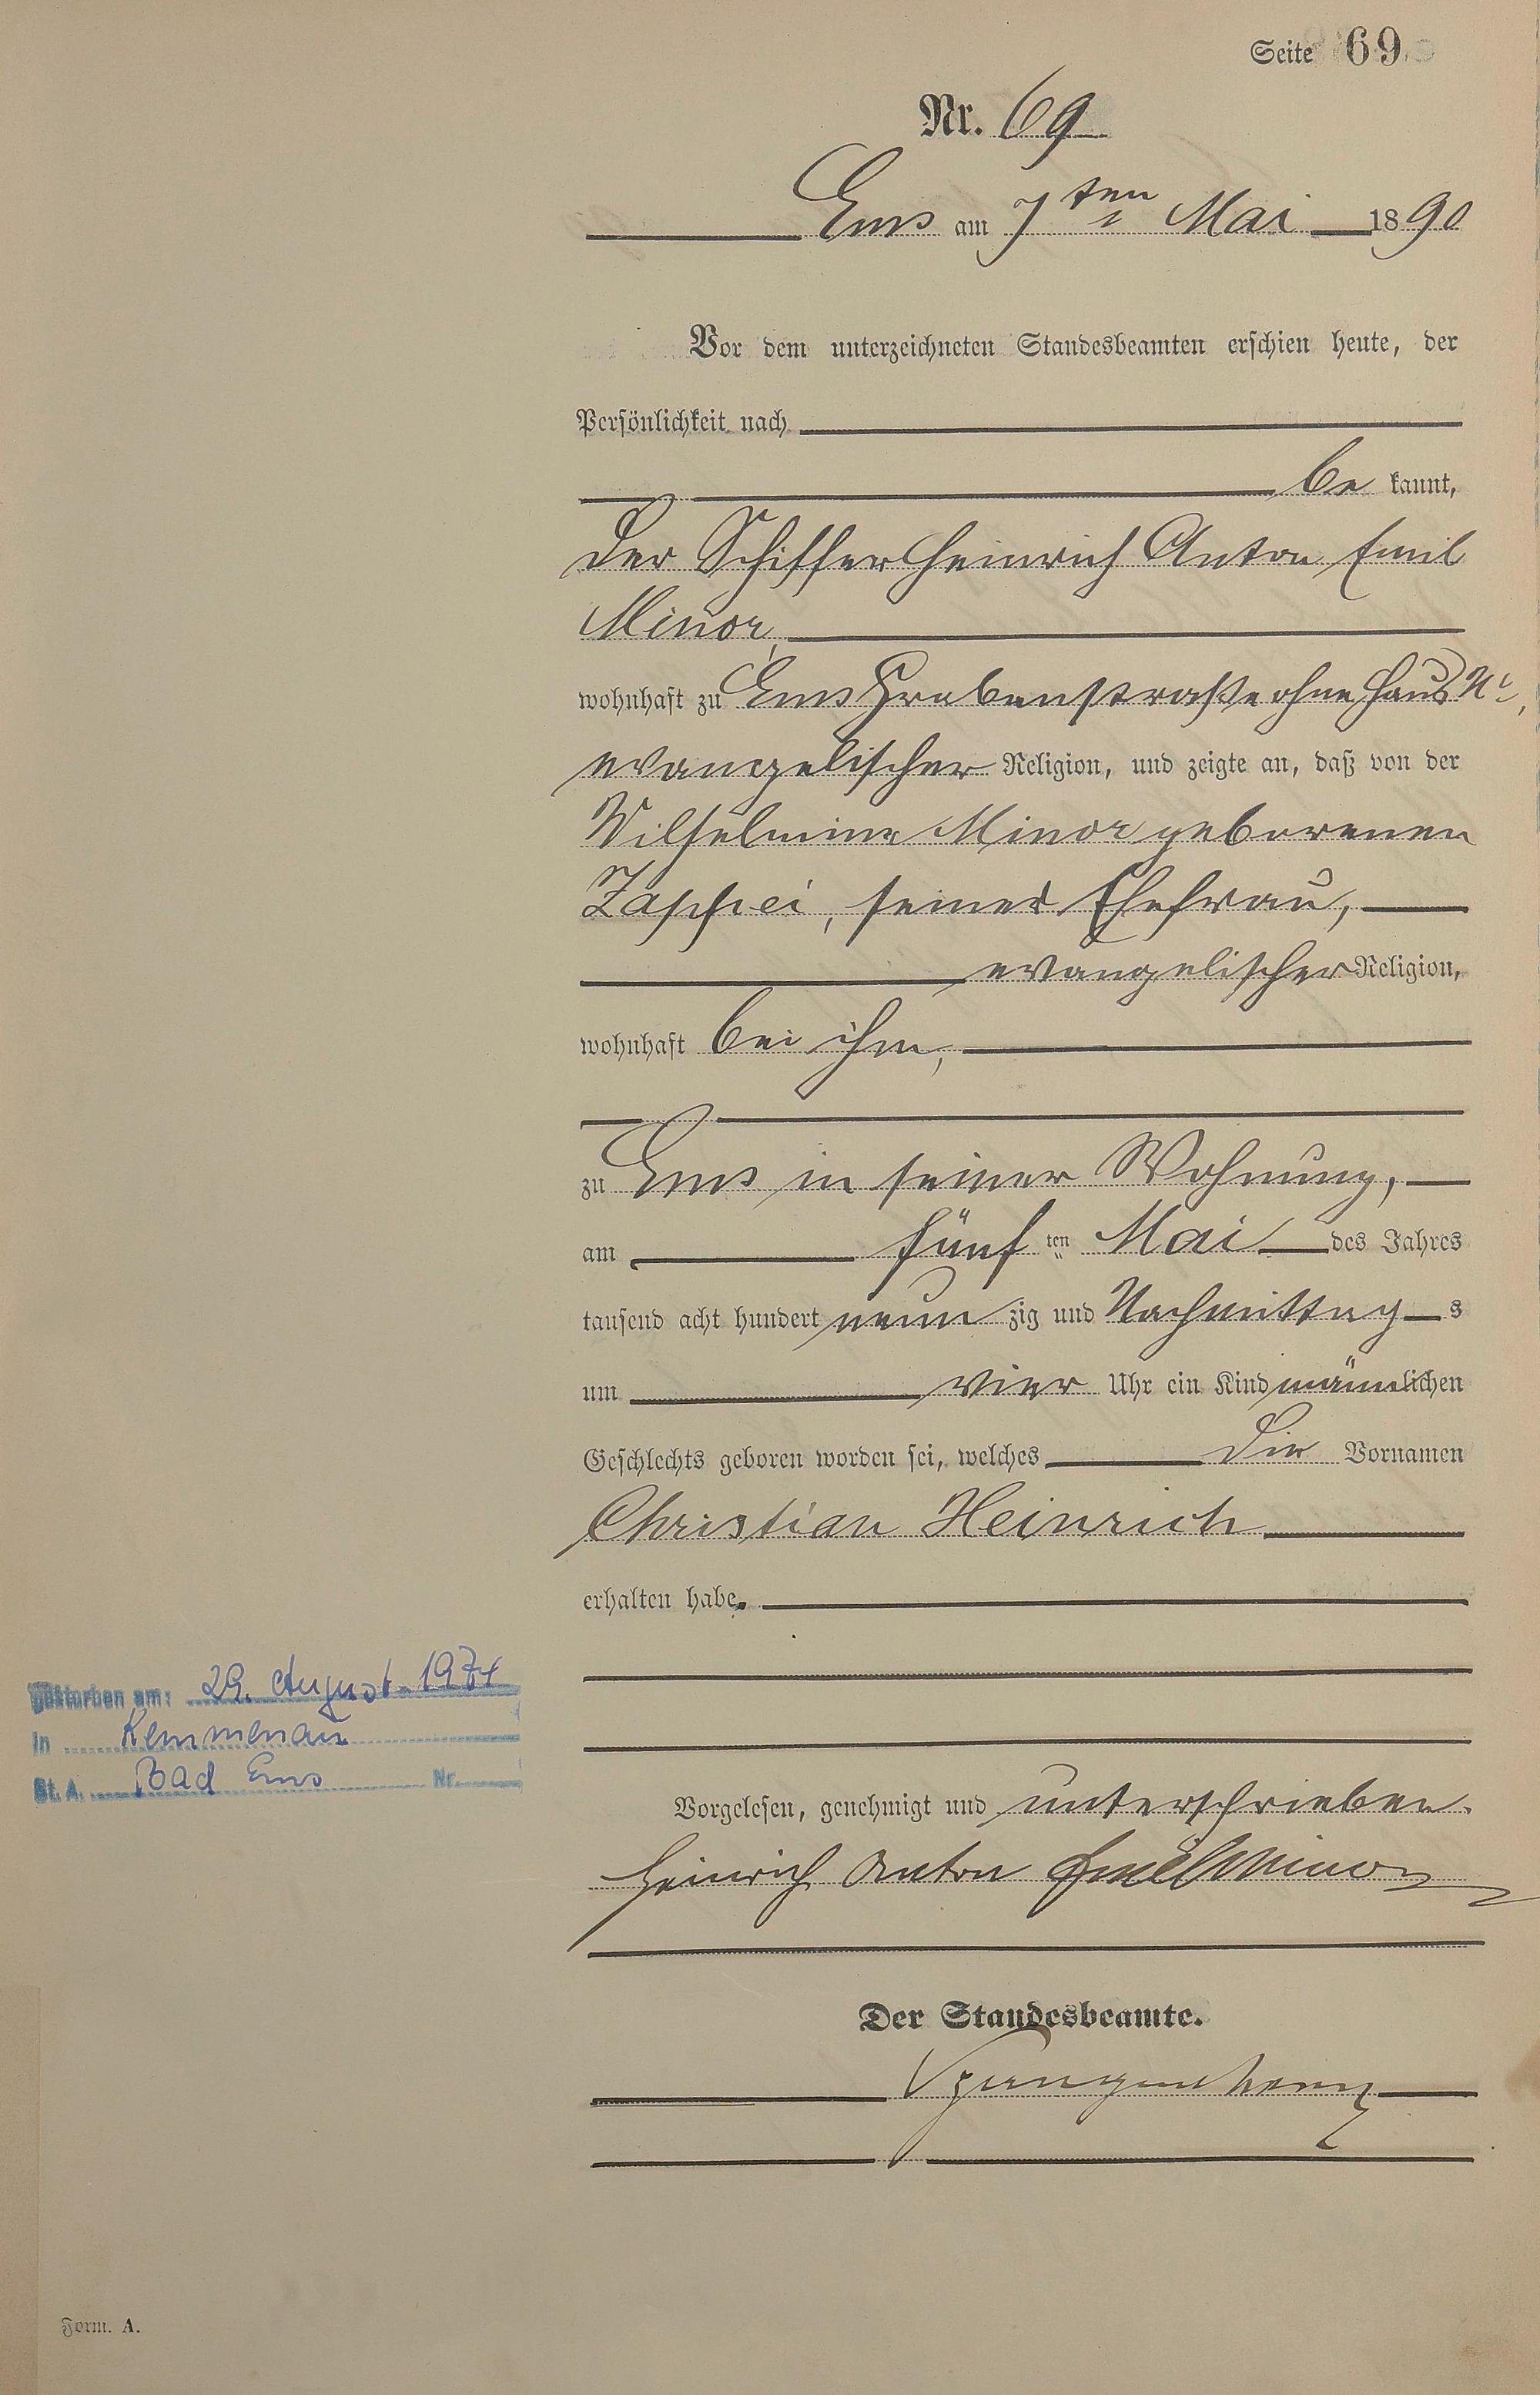 Seite 69
Nr. 69
Ems am 7ten Mai 1890
Vor dem unterzeichneten Standesbeamten erschien heute, der
Persönlichkeit nach
bekannt,
der Schiffer Heinrich Anton Emil
Minor,
wohnhaft zu Ems Grabenstraße ohne Haus Nr,
evangelischer Religion, und zeigte an, daß von der
Wilhelmine Minor geborenen
seiner Ehefrau,
evangelischer Religion,
wohnhaft bei ihm,
zu Ems in seiner Wohnung,
am fünften Mai des Jahres
tausend acht hundert neunzig und Nachmittags
um vier Uhr ein Kind männlichen
Geschlechts geboren worden sei, welches die Vornamen
Christian Heinrich
erhalten habe.
Gestorben am: 29. August 1974
In Kemmenau
St. A. Bad Ems Nr.
Vorgelesen, genehmigt und unterschrieben.
Heinrich Anton Emil Minor
Der Standesbeamte.
Form. A.